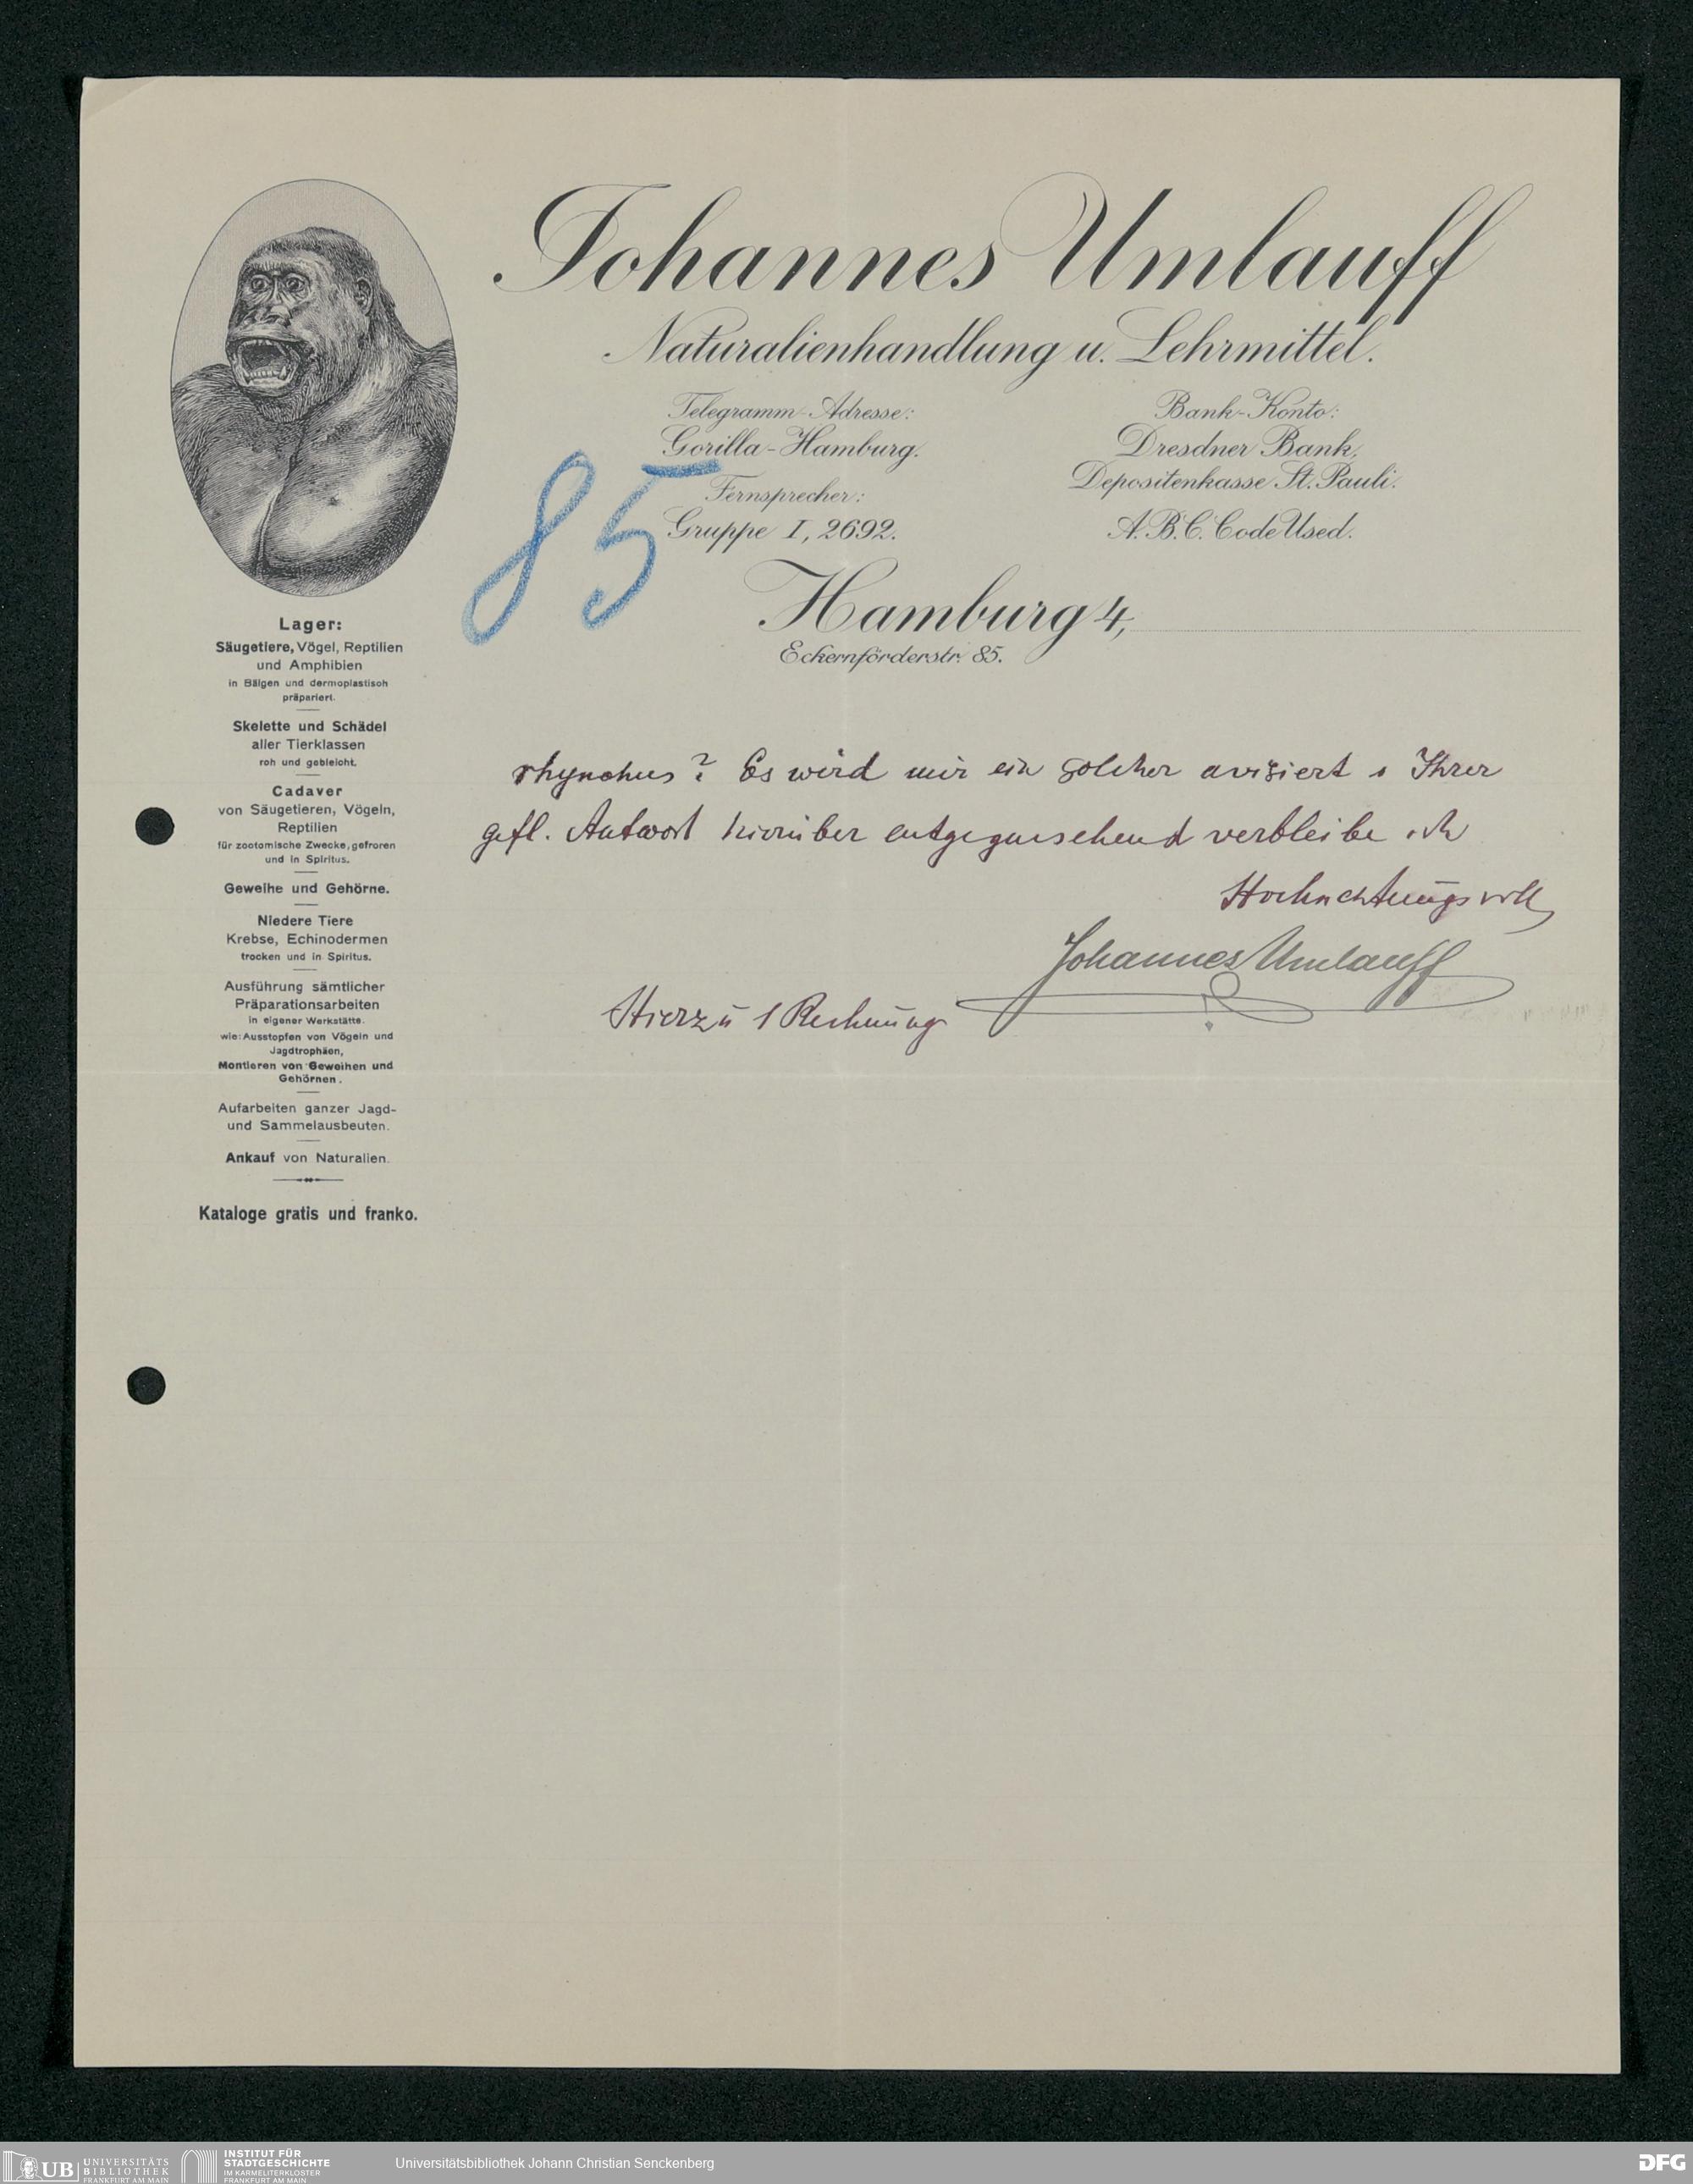 Johannes Umlauff
Naturalienhandlung u. Lehrmittel.
Telegramm-Adresse:
Gorilla-Hamburg.
Fernsprecher:
Gruppe I, 2692.
Bank-Konto:
Dresdner Bank,
Depositenkasse St. Pauli.
A.B.C. Code Used.
85
Hamburg 4,
Eckernförderstr. 85.
Lager:
Säugetiere, Vögel, Reptilien
und Amphibien
in Bälgen und dermoplastisch
präpariert.
Skelette und Schädel
aller Tierklassen
roh und gebleicht.
Cadaver
von Säugetieren, Vögeln,
Reptilien
für zootomische Zwecke, gefroren
und in Spiritus.
Geweihe und Gehörne.
Niedere Tiere
Krebse, Echinodermen
trocken und in Spiritus.
Ausführung sämtlicher
Präparationsarbeiten
in eigener Werkstätte.
wie: Ausstopfen von Vögeln und
Jagdtrophäen,
Montieren von Geweihen und
Gehörnen.
Aufarbeiten ganzer Jagd-
und Sammelausbeuten.
Ankauf von Naturalien.
Kataloge gratis und franko.
rhynchus? Es wird mir ein solcher avisiert. Ihrer
gefl. Antwort hierüber entgegensehend verbleibe ich
Hochachtungsvoll
Johannes Umlauff
Hierzu 1 Rechnung
UB UNIVERSITÄTS
BIBLIOTHEK
FRANKFURT AM MAIN
INSTITUT FÜR
STADTGESCHICHTE
IM KARMELITERKLOSTER
FRANKFURT AM MAIN
Universitätsbibliothek Johann Christian Senckenberg
DFG